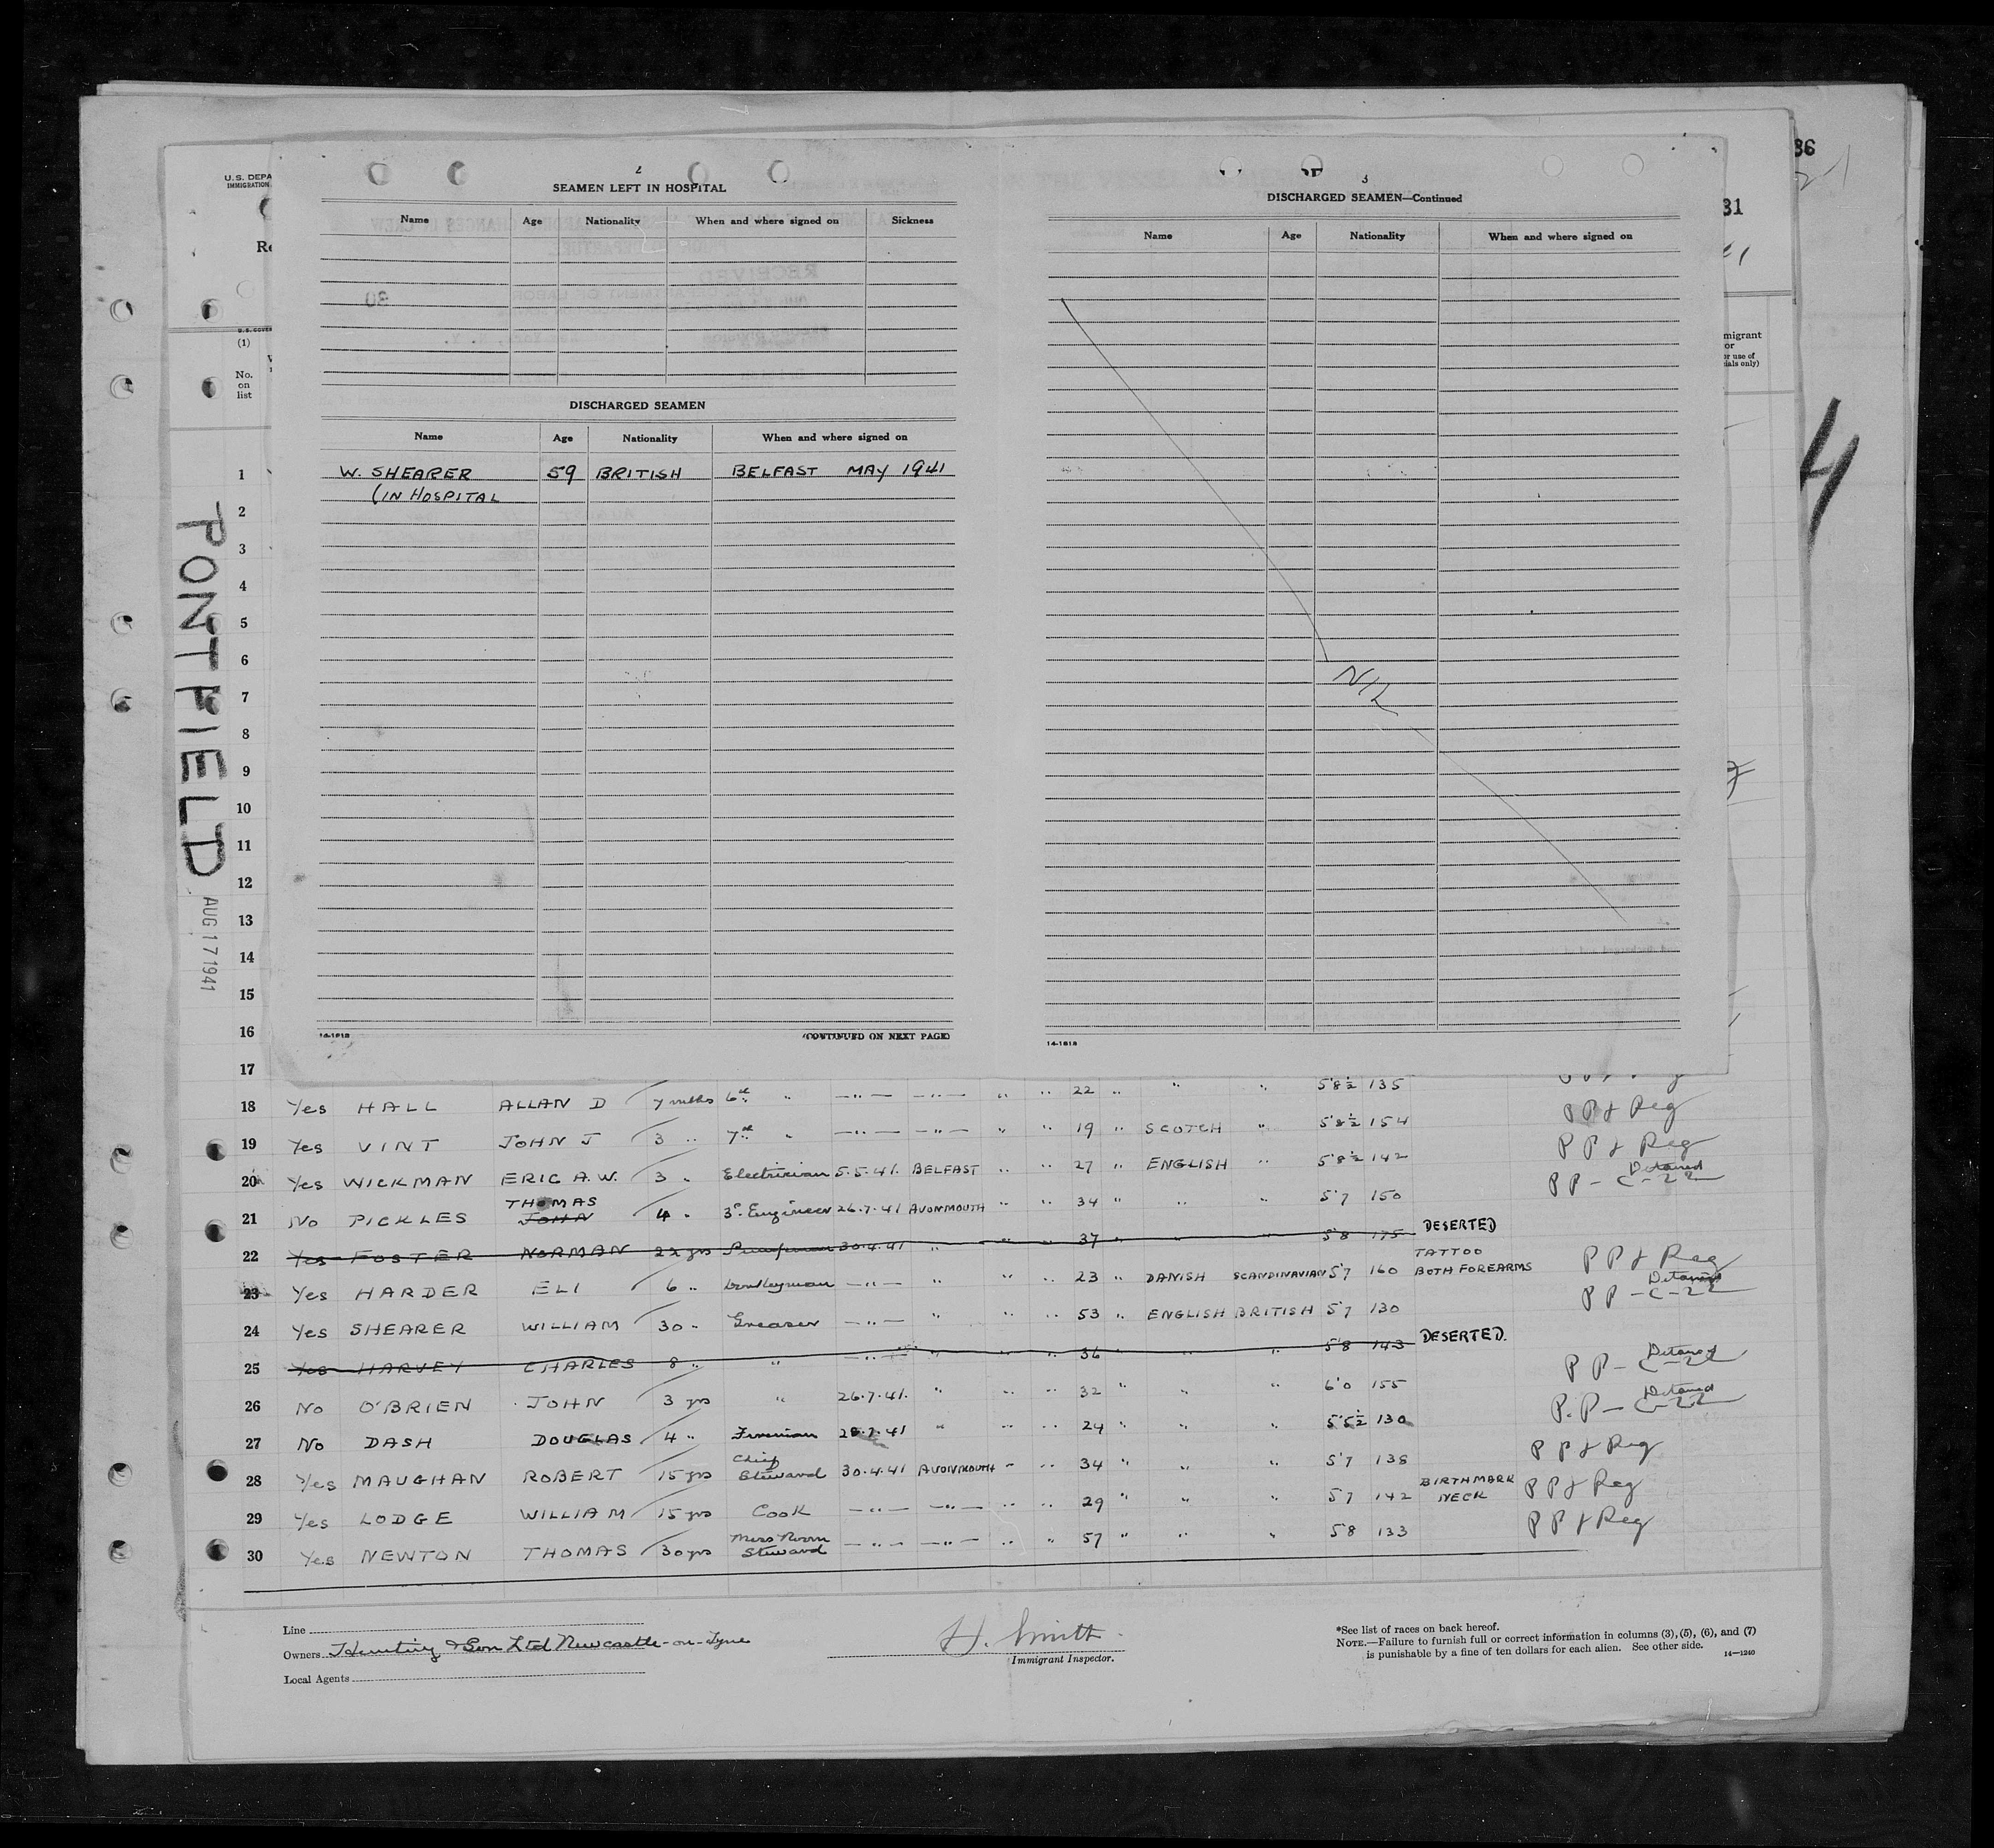 36
31
U.S. DEPA
IMMIGRATION
Re
(1)
No.
on
list
migrant
or
or use of
ials only)
4
PONTFIELD
AUG 17 1941
2
SEAMEN LEFT IN HOSPITAL
Name Age Nationality When and where signed on Sickness
DISCHARGED SEAMEN
Name Age Nationality When and where signed on
W. SHEARER 59 BRITISH BELFAST MAY 1941
(IN HOSPITAL
14-1618 (CONTINUED ON NEXT PAGE)
3
DISCHARGED SEAMEN—Continued
Name Age Nationality When and where signed on
NIL
14-1618
1
2
3
4
5
6
7
8
9
10
11
12
13
14
15
16
17
18 Yes HALL ALLAN D 7 mths 6th " —"— —"— " " 22 " " " 5'8½ 135
19 Yes VINT JOHN J 3 " 7th " —"— —"— " " 19 " SCOTCH " 5'8½ 154 PP & Reg
20 Yes WICKMAN ERIC A.W. 3 " Electrician 5.5.41. BELFAST " " 27 " ENGLISH " 5'8½ 142 PP & Reg
21 No PICKLES THOMAS JOHN 4 " 3rd Engineer 26.7.41 AVONMOUTH " " 34 " " " 5'7 150 PP - C-22 Detained
22 Yes FOSTER NORMAN 22 yrs Pumpman 30.4.41 " " " 37 " " " 5'8 175 DESERTED
23 Yes HARDER ELI 6 " Donkeyman —"— " " " 23 " DANISH SCANDINAVIAN 5'7 160 TATTOO BOTH FOREARMS PP & Reg
24 Yes SHEARER WILLIAM 30 " Greaser —"— " " " 53 " ENGLISH BRITISH 5'7 130 PP - C-22 Detained
25 Yes HARVEY CHARLES 8 " " —"— " " " 36 " " " 5'8 143 DESERTED.
26 No O'BRIEN JOHN 3 yrs " 26.7.41. " " " 32 " " " 6'0 155 PP - C-22 Detained
27 No DASH DOUGLAS 4 " Fireman 28.7.41 " " " 24 " " " 5'5½ 130 P.P - C-22 Detained
28 Yes MAUGHAN ROBERT 15 yrs Chief Steward 30.4.41 AVONMOUTH " " 34 " " " 5'7 138 PP & Reg
29 Yes LODGE WILLIAM 15 yrs Cook —"— —"— " " 29 " " " 5'7 142 BIRTHMARK NECK PP & Reg
30 Yes NEWTON THOMAS 30 yrs Mess Room Steward —"— —"— " " 57 " " " 5'8 133 PP & Reg
Line
Owners Hunting & Son Ltd Newcastle-on-Tyne
Local Agents
H. Smith
Immigrant Inspector.
*See list of races on back hereof.
NOTE.—Failure to furnish full or correct information in columns (3),(5), (6), and (7)
is punishable by a fine of ten dollars for each alien. See other side.
14—1240